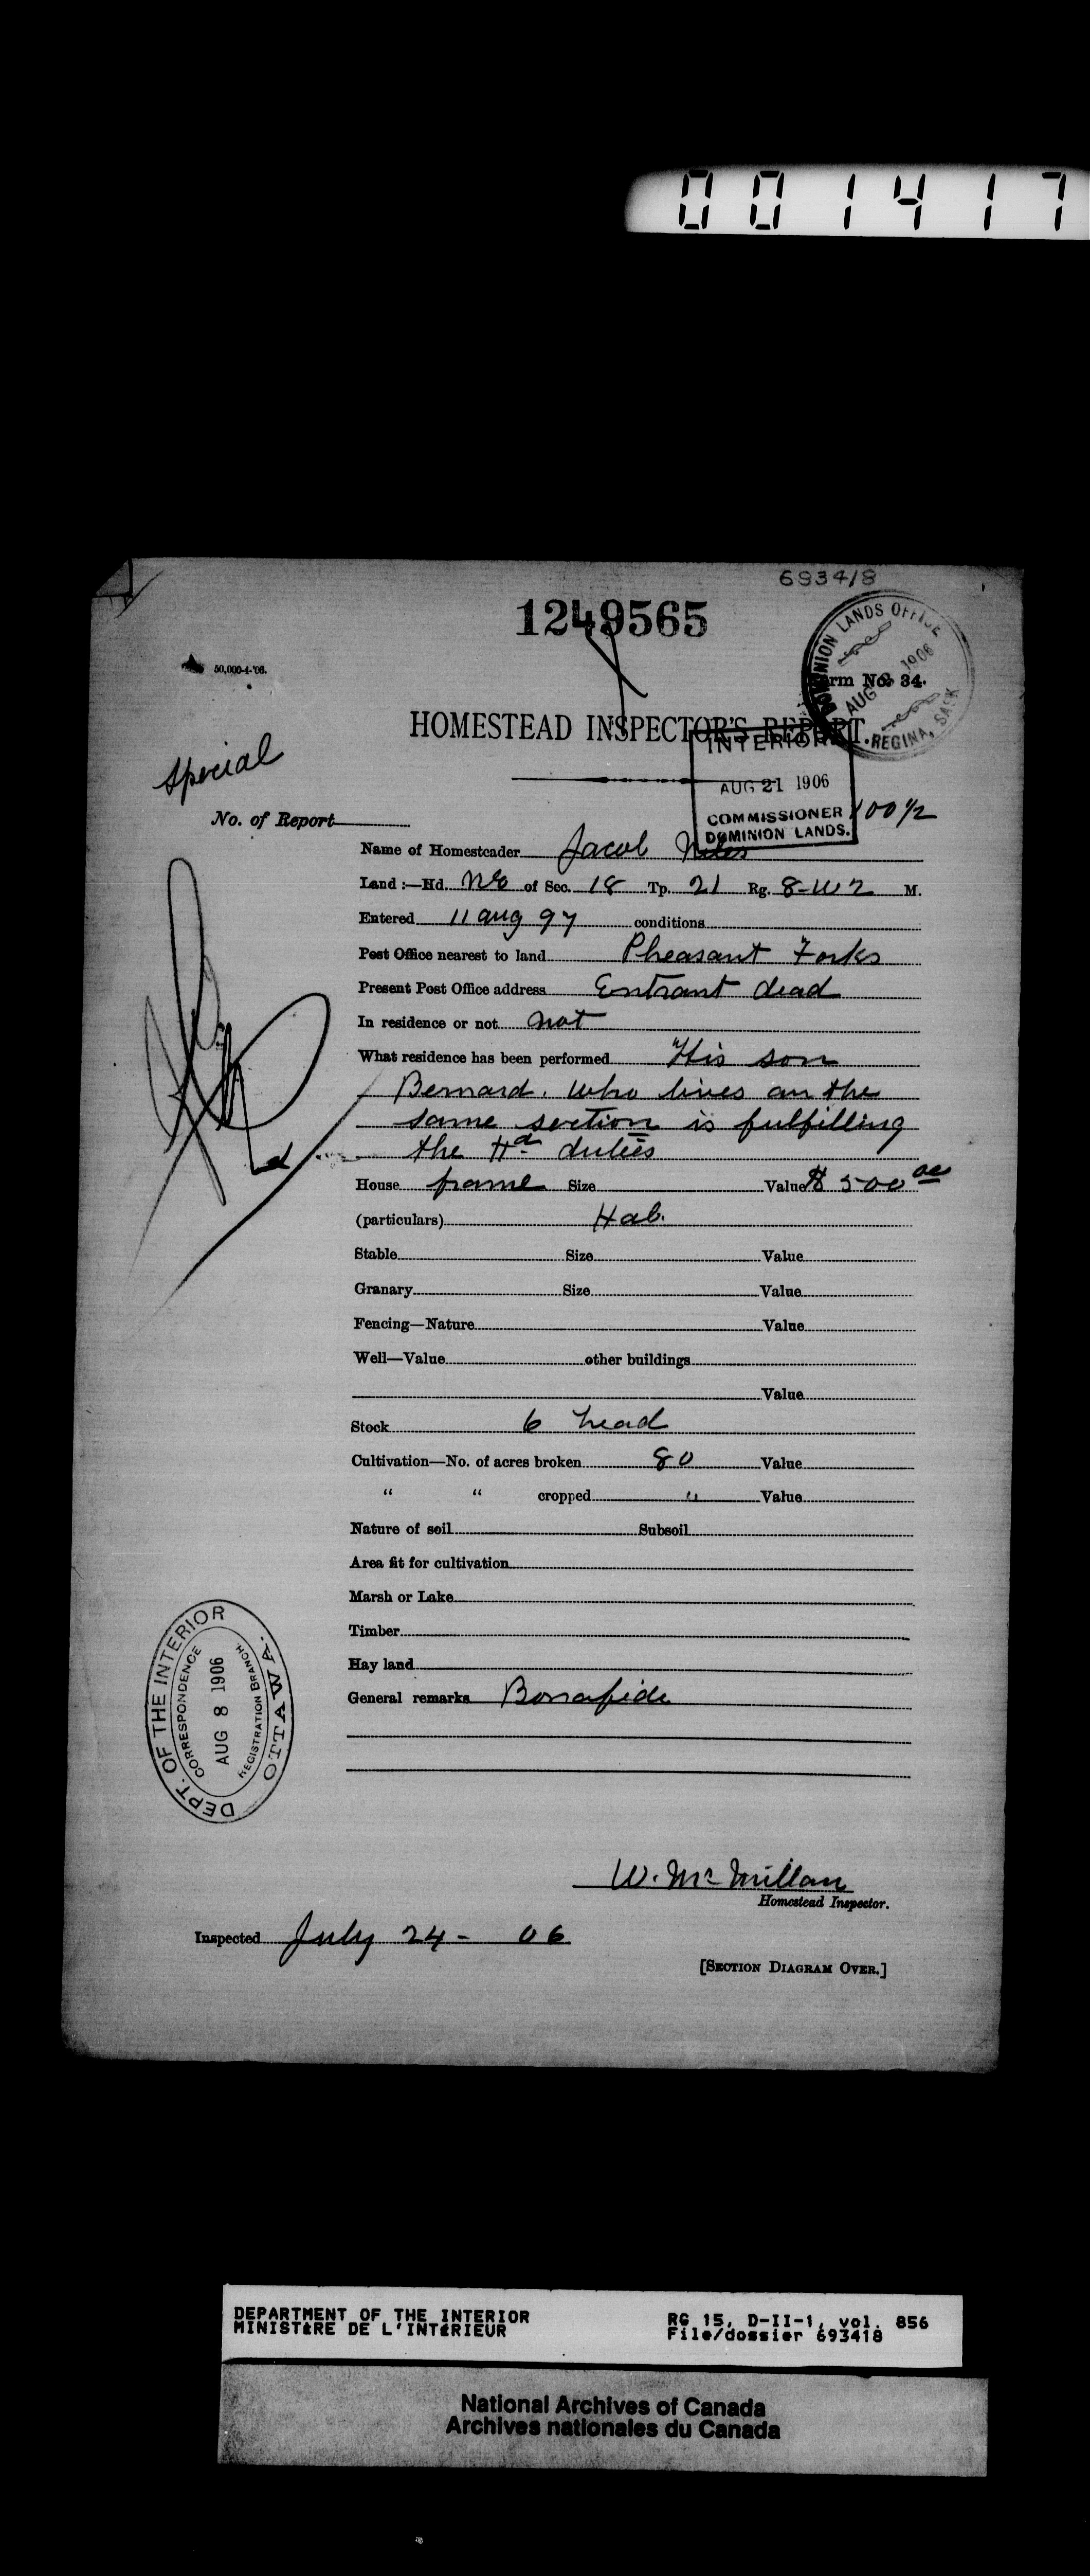 001417
693418
1249565
50,000-4-'06.
DOMINION LANDS OFFICE
AUG 1906
REGINA, SASK
Form No. 34.
HOMESTEAD INSPECTOR'S REPORT.
INTERIOR
AUG 21 1906
COMMISSIONER
DOMINION LANDS.
Special
100 1/2
No. of Report
Name of Homesteader Jacob
Land:—Hd. NE of Sec. 18 Tp. 21 Rg. 8-W2 M.
Entered 11 Aug 97 conditions
Post Office nearest to land Pheasant Forks
Present Post Office address Entrant dead
In residence or not not
What residence has been performed His son
Bernard. who lives on the
same section is fulfilling
the Hd duties
House frame Size Value $ 500 00
(particulars) Hab.
Stable Size Value
Granary Size Value
Fencing—Nature Value
Well—Value other buildings
Value
Stock 6 head
Cultivation—No. of acres broken 80 Value
" " cropped " Value
Nature of soil Subsoil
Area fit for cultivation
Marsh or Lake
Timber
Hay land
General remarks Bonafide
DEPT. OF THE INTERIOR
CORRESPONDENCE
AUG 8 1906
REGISTRATION BRANCH
OTTAWA.
W. McMillan
Homestead Inspector.
Inspected July 24- 06
[SECTION DIAGRAM OVER.]
DEPARTMENT OF THE INTERIOR RG 15, D-II-1, vol. 856
MINISTÈRE DE L'INTÉRIEUR File/dossier 693418
National Archives of Canada
Archives nationales du Canada